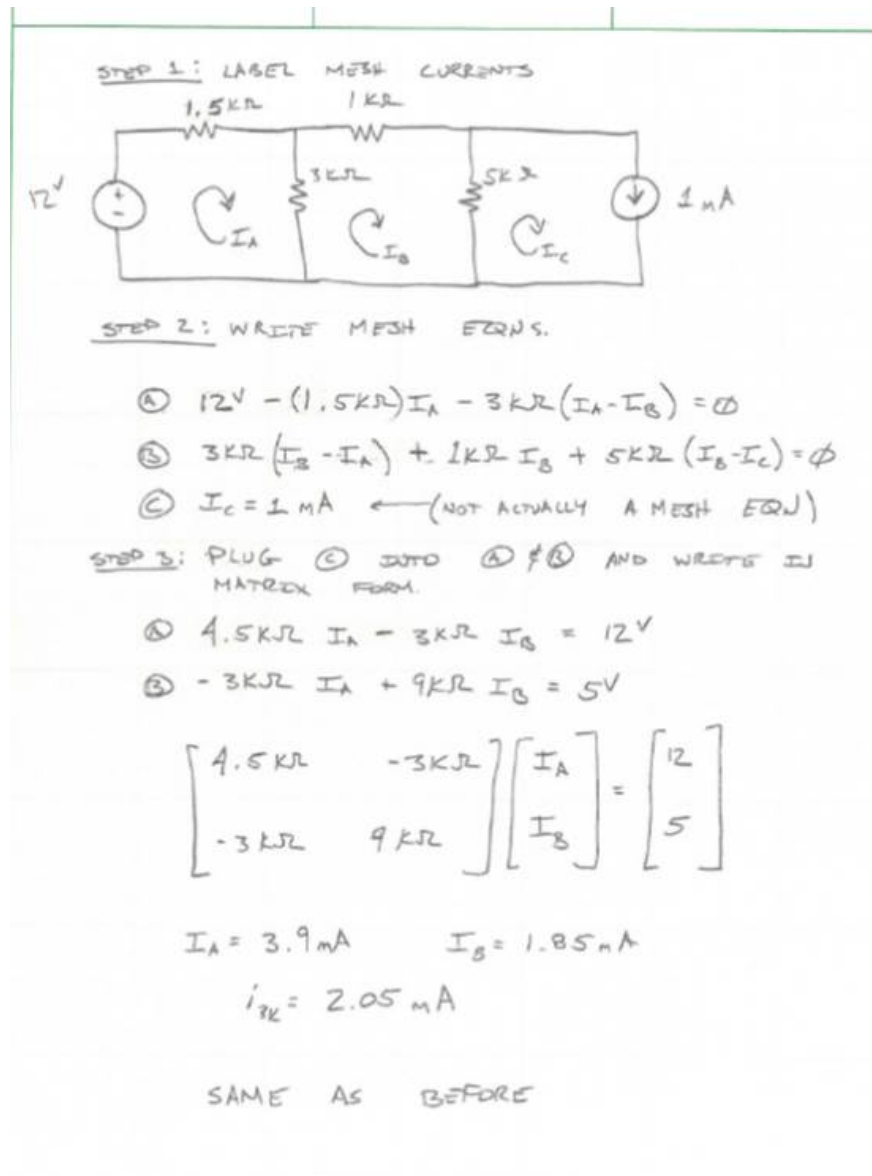 STEP 1: LABEL MESH CURRENTS
1.5KΩ 1KΩ
12V + - 3KΩ 5KΩ 1 mA
I_A I_B I_C
STEP 2: WRITE MESH EQNS.
Ⓐ 12V - (1.5KΩ)I_A - 3KΩ(I_A-I_B) = Ø
Ⓑ 3KΩ(I_B-I_A) + 1KΩ I_B + 5KΩ (I_B-I_C) = Ø
Ⓒ I_C = 1 mA ← (NOT ACTUALLY A MESH EQN)
STEP 3: PLUG Ⓒ INTO Ⓐ & Ⓑ AND WRITE IN
MATRIX FORM.
Ⓐ 4.5KΩ I_A - 3KΩ I_B = 12V
Ⓑ -3KΩ I_A + 9KΩ I_B = 5V
[4.5KΩ -3KΩ] [I_A] = [12]
[-3KΩ 9KΩ] [I_B] [5]
I_A = 3.9mA I_B = 1.85mA
i_3K = 2.05 mA
SAME AS BEFORE